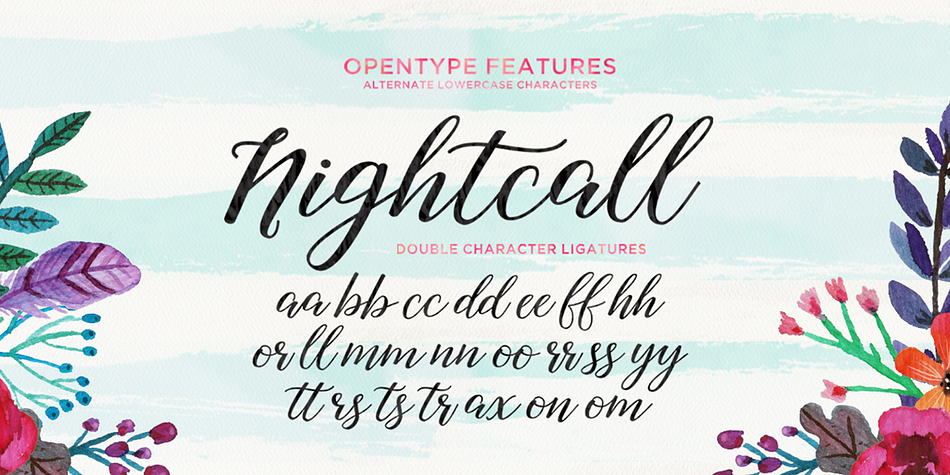 OPENTYPE FEATURES
ALTERNATE LOWERCASE CHARACTERS
Nightcall
DOUBLE CHARACTER LIGATURES
aa bb cc dd ee ff hh
or ll mm nn oo rr ss yy
tt rs ts tr ax on om